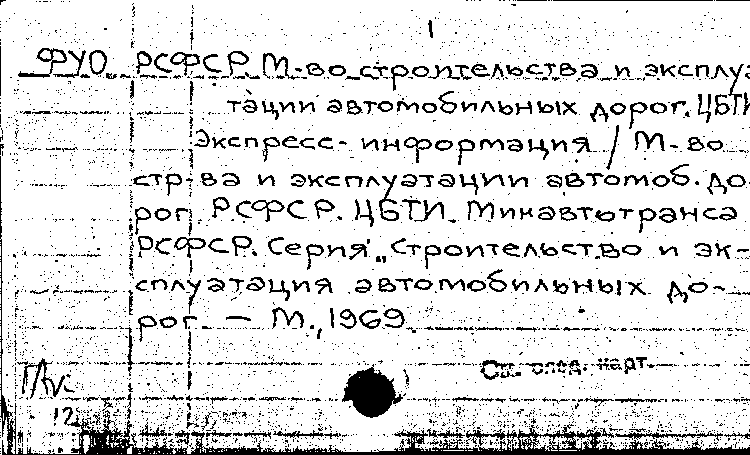 1
ФУО РСФСР. М-во строительства и эксплуа
тации автомобильных дорог. ЦБТИ
Экспресс-информация / М-во
стр-ва и эксплуатации автомоб. до
рог РСФСР. ЦБТИ. Минавтотранса
РСФСР. Серия „Строительство и эк-
сплуатация автомобильных до-
рог. — М., 1969.
См. след. карт.
12